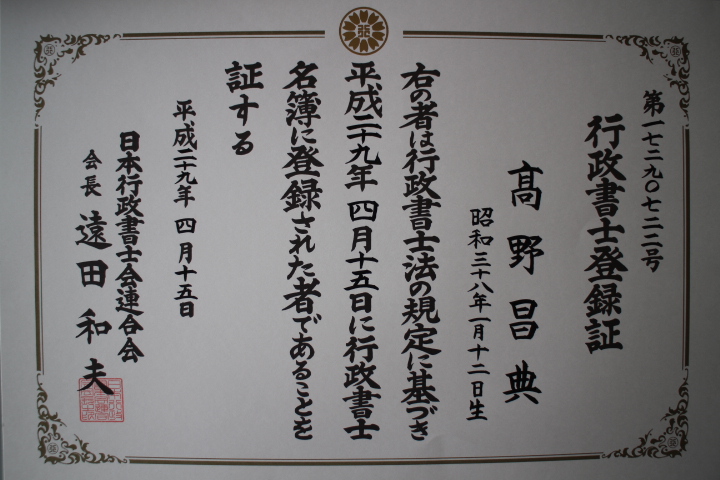 第一七二九〇七二二号
行政書士登録証
髙野昌典
昭和三十八年一月十二日生
右の者は行政書士法の規定に基づき
平成二十九年四月十五日に行政書士
名簿に登録された者であることを
証する
平成二十九年四月十五日
日本行政書士会連合会
会長 遠田和夫